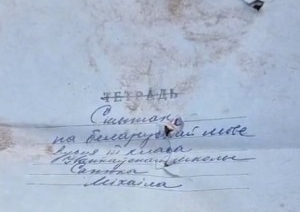 ТЕТРАДЬ
Сшытак
па беларускай мове
вучня III класа
школы
Міхаіла